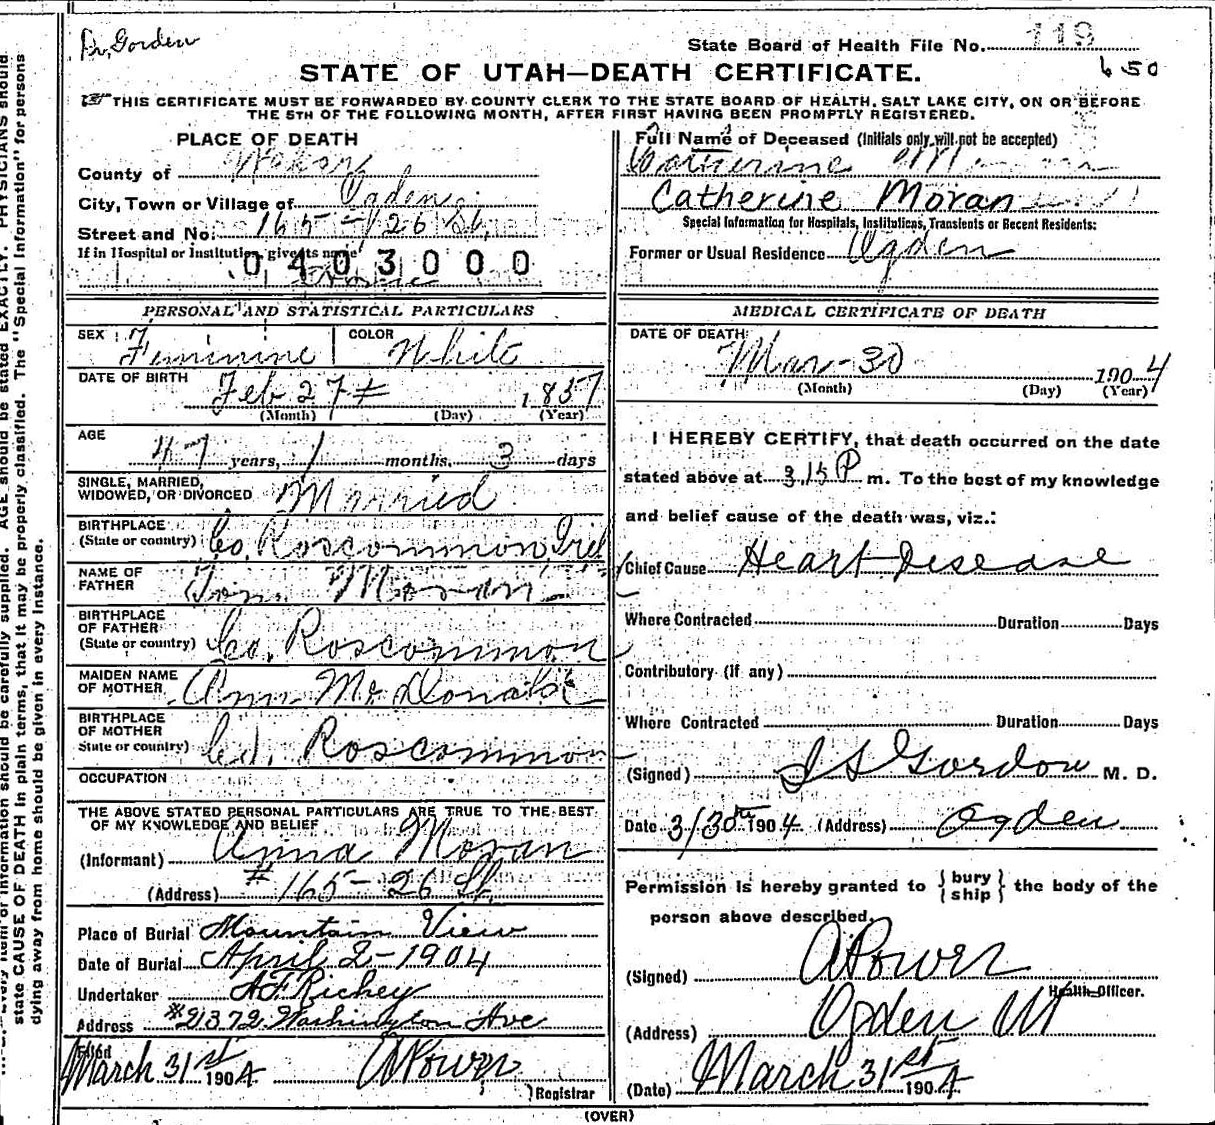 Dr. Gorden
State Board of Health File No. 119
650
STATE OF UTAH—DEATH CERTIFICATE.
THIS CERTIFICATE MUST BE FORWARDED BY COUNTY CLERK TO THE STATE BOARD OF HEALTH, SALT LAKE CITY, ON OR BEFORE
THE 5TH OF THE FOLLOWING MONTH, AFTER FIRST HAVING BEEN PROMPTLY REGISTERED.
PLACE OF DEATH
County of Weber
City, Town or Village of Ogden
Street and No. 165 - 26 St.
If in Hospital or Institution give its name
0403000
Home
Full Name of Deceased (Initials only will not be accepted)
Catherine
Catherine Moran
Special Information for Hospitals, Institutions, Transients or Recent Residents:
Former or Usual Residence Ogden
PERSONAL AND STATISTICAL PARTICULARS
SEX Feminine
COLOR White
DATE OF BIRTH Feb 27 1857
(Month) (Day) (Year)
AGE 47 years, 1 months, 3 days
SINGLE, MARRIED,
WIDOWED, OR DIVORCED Married
BIRTHPLACE
(State or country) Co. Roscommon Irel
NAME OF
FATHER Moran
BIRTHPLACE
OF FATHER
(State or country) Co. Roscommon
MAIDEN NAME
OF MOTHER Ann McDonald
BIRTHPLACE
OF MOTHER
State or country) Co. Roscommon
OCCUPATION
THE ABOVE STATED PERSONAL PARTICULARS ARE TRUE TO THE BEST
OF MY KNOWLEDGE AND BELIEF
(Informant) Anna Moran
(Address) # 165 - 26 St.
Place of Burial Mountain View
Date of Burial April 2 - 1904
Undertaker A F Richey
Address #2372 Washington Ave
Filed
March 31st 1904 A Power
Registrar
MEDICAL CERTIFICATE OF DEATH
DATE OF DEATH
Mar - 30 1904
(Month) (Day) (Year)
I HEREBY CERTIFY, that death occurred on the date
stated above at 3.15 P m. To the best of my knowledge
and belief cause of the death was, viz.:
Chief Cause Heart Disease
Where Contracted Duration Days
Contributory (if any)
Where Contracted Duration Days
(Signed) Gordon M. D.
Date 3/30th 1904 (Address) Ogden
Permission is hereby granted to {bury
ship} the body of the
person above described.
(Signed) A Power
Health Officer.
(Address) Ogden Ut
(Date) March 31st 1904
(OVER)
state CAUSE OF DEATH in plain terms, that it may be properly classified. The "Special Information" for persons
dying away from home should be given in every instance.